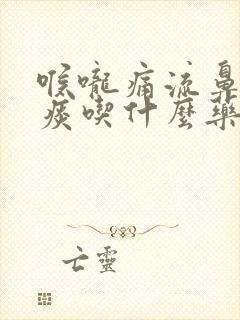 喉嚨痛流鼻
痰喫什麼藥
亡靈